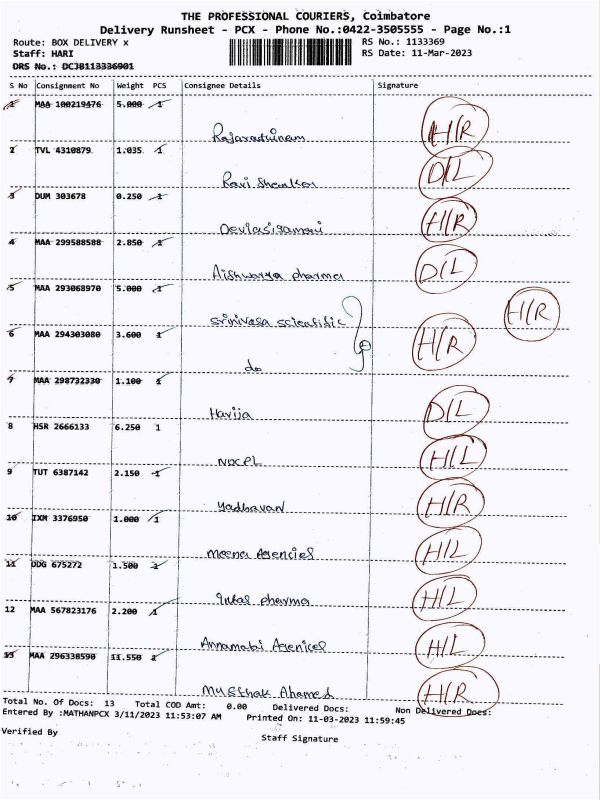 THE PROFESSIONAL COURIERS, Coimbatore
Delivery Runsheet - PCX - Phone No.:0422-3505555 - Page No.:1
Route: BOX DELIVERY x RS No.: 1133369
Staff: HARI RS Date: 11-Mar-2023
DRS No.: DCJB113336901
S No Consignment No Weight PCS Consignee Details Signature
1 MAA 100219476 5.000 1
Rajarathinam H/R
2 TVL 4310879 1.035 1
Ravi Shankar D/L
3 DUM 303678 0.250 1
Devlasigamani H/R
4 MAA 299588588 2.850 1
Aishwarya pharma D/L
5 MAA 293068970 5.000 1
srinivasa scientific H/R
6 MAA 294303080 3.600 1
do H/R
7 MAA 298732330 1.100 1
Harija D/L
8 HSR 2666133 6.250 1
H/L
9 TUT 6387142 2.150 1
Yadhavan H/R
10 IXM 3376950 1.000 1
meena Agencies H/L
11 DDG 675272 1.500 1
pharma H/L
12 MAA 567823176 2.200 1
H/L
13 MAA 296338590 11.550 1
Musthak Ahamed H/R
Total No. Of Docs: 13 Total COD Amt: 0.00 Delivered Docs: Non Delivered Docs:
Entered By :MATHANPCX 3/11/2023 11:53:07 AM Printed On: 11-03-2023 11:59:45
Verified By
Staff Signature